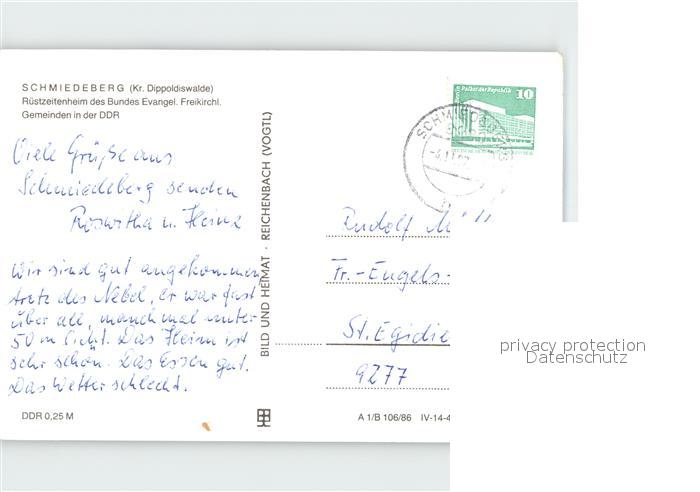 SCHMIEDEBERG (Kr. Dippoldiswalde)
Rüstzeitenheim des Bundes Evangel. Freikirchl.
Gemeinden in der DDR
Viele Grüße aus
Schmiedeberg senden
Roswitha u. Heinz
Wir sind gut angekommen
trotz des Nebel, er war fast
über all, manchmal unter
50 m Sicht. Das Heim ist
sehr schön. Das Essen gut.
Das Wetter schlecht.
DDR 0,25 M
BILD UND HEIMAT · REICHENBACH (VOGTL)
Berlin, Palast der Republik
10
SCHMIEDEBERG
Rudolf
Fr.-Engels-
St. Egidie
9277
A 1/B 106/86 IV-14-4
privacy protection
Datenschutz